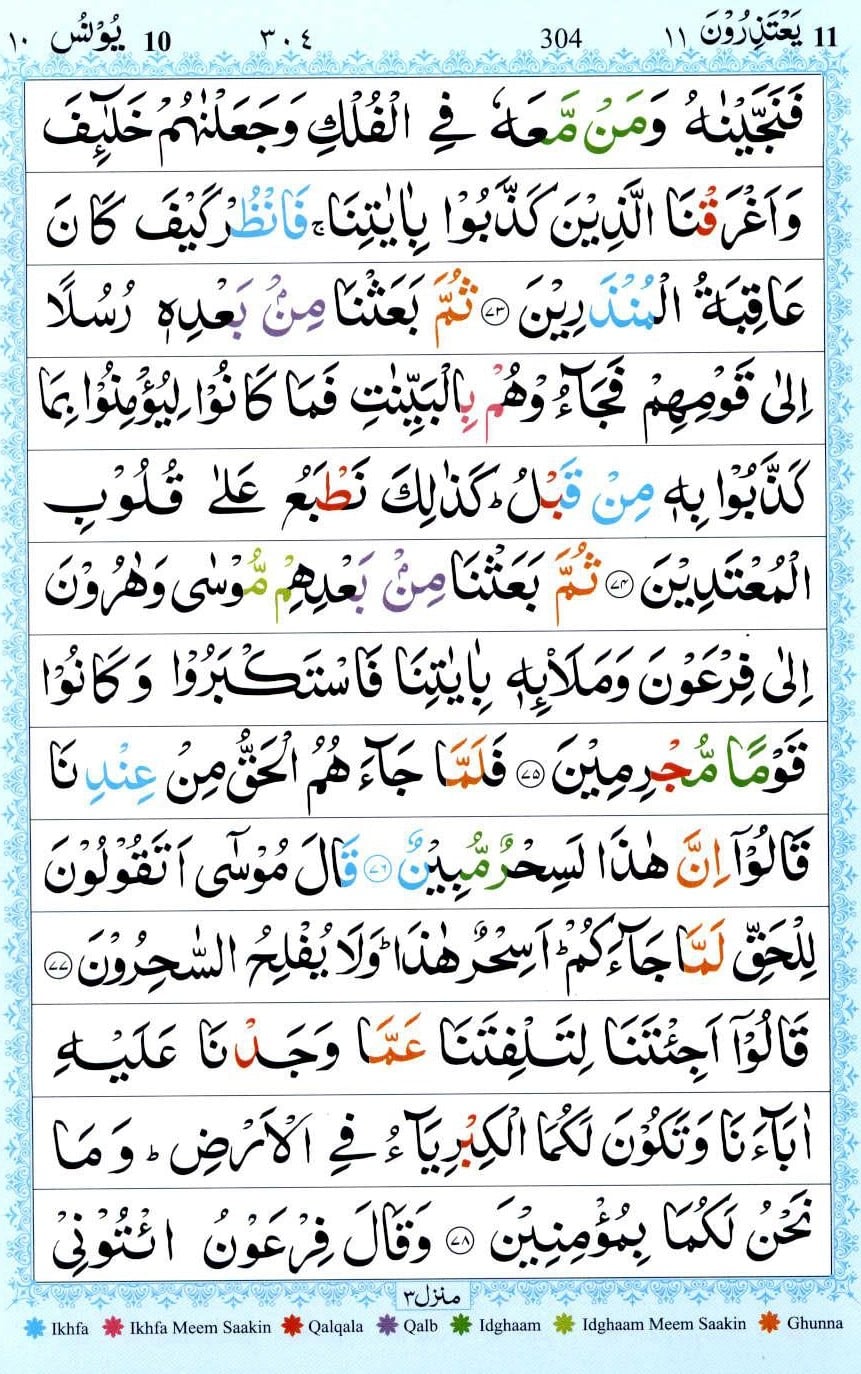 11 يَعْتَذِرُوْنَ ١١ 304 ٣٠٤ 10 يُوْنُسُ ١٠
فَنَجَّيْنٰهُ وَمَنْ مَّعَهٗ فِي الْفُلْكِ وَجَعَلْنٰهُمْ خَلٰٓئِفَ
وَاَغْرَقْنَا الَّذِيْنَ كَذَّبُوْا بِاٰيٰتِنَا ۚ فَانْظُرْ كَيْفَ كَانَ
عَاقِبَةُ الْمُنْذَرِيْنَ ۝٧٣ ثُمَّ بَعَثْنَا مِنْۢ بَعْدِهٖ رُسُلًا
اِلٰى قَوْمِهِمْ فَجَآءُوْهُمْ بِالْبَيِّنٰتِ فَمَا كَانُوْا لِيُؤْمِنُوْا بِمَا
كَذَّبُوْا بِهٖ مِنْ قَبْلُ ؕ كَذٰلِكَ نَطْبَعُ عَلٰى قُلُوْبِ
الْمُعْتَدِيْنَ ۝٧٤ ثُمَّ بَعَثْنَا مِنْۢ بَعْدِهِمْ مُّوْسٰى وَهٰرُوْنَ
اِلٰى فِرْعَوْنَ وَمَلَا۟ئِهٖ بِاٰيٰتِنَا فَاسْتَكْبَرُوْا وَكَانُوْا
قَوْمًا مُّجْرِمِيْنَ ۝٧٥ فَلَمَّا جَآءَهُمُ الْحَقُّ مِنْ عِنْدِنَا
قَالُوْٓا اِنَّ هٰذَا لَسِحْرٌ مُّبِيْنٌ ۝٧٦ قَالَ مُوْسٰٓى اَتَقُوْلُوْنَ
لِلْحَقِّ لَمَّا جَآءَكُمْ ؕ اَسِحْرٌ هٰذَا ؕ وَلَا يُفْلِحُ السّٰحِرُوْنَ ۝٧٧
قَالُوْٓا اَجِئْتَنَا لِتَلْفِتَنَا عَمَّا وَجَدْنَا عَلَيْهِ
اٰبَآءَنَا وَتَكُوْنَ لَكُمَا الْكِبْرِيَآءُ فِي الْاَرْضِ ؕ وَمَا
نَحْنُ لَكُمَا بِمُؤْمِنِيْنَ ۝٧٨ وَقَالَ فِرْعَوْنُ ائْتُوْنِيْ
منزل٣
Ikhfa Ikhfa Meem Saakin Qalqala Qalb Idghaam Idghaam Meem Saakin Ghunna